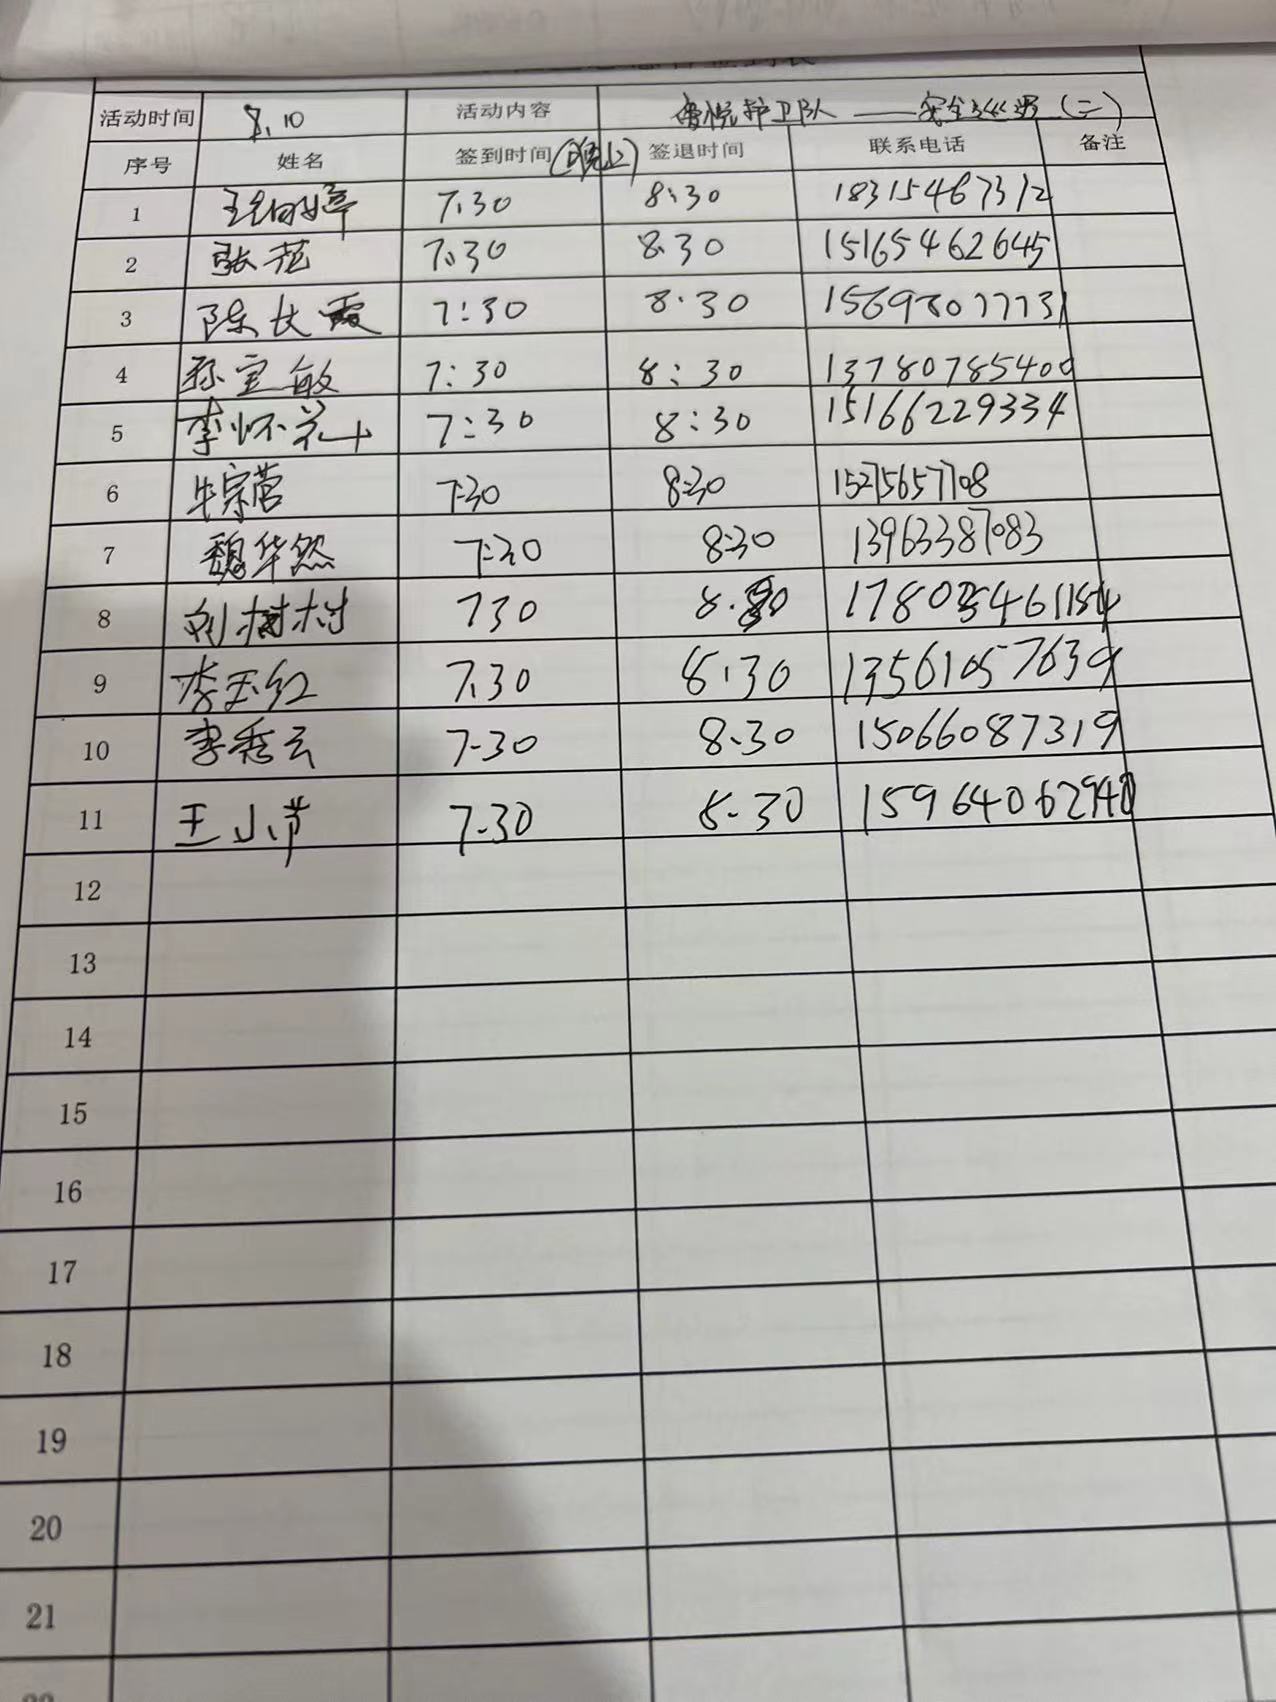 活动时间 8.10 活动内容 悦护卫队——安全巡逻(二)
序号 姓名 签到时间(晚上) 签退时间 联系电话 备注
1 7.30 8:30 18315467312
2 张范 7:30 8.30 15165462645
3 陈长霞 7:30 8.30 15698077731
4 孙宝敏 7:30 8:30 13780785400
5 李怀兰 7:30 8:30 15166229334
6 牛宗营 7:30 8:30 15275657708
7 魏华然 7:30 8:30 13963387083
8 刘树村 730 8.30
9 李玉红 7.30 8.30 13561057639
10 李秀云 7-30 8.30 15066087319
11 王小节 7-30 8-30 15964062940
12
13
14
15
16
17
18
19
20
21